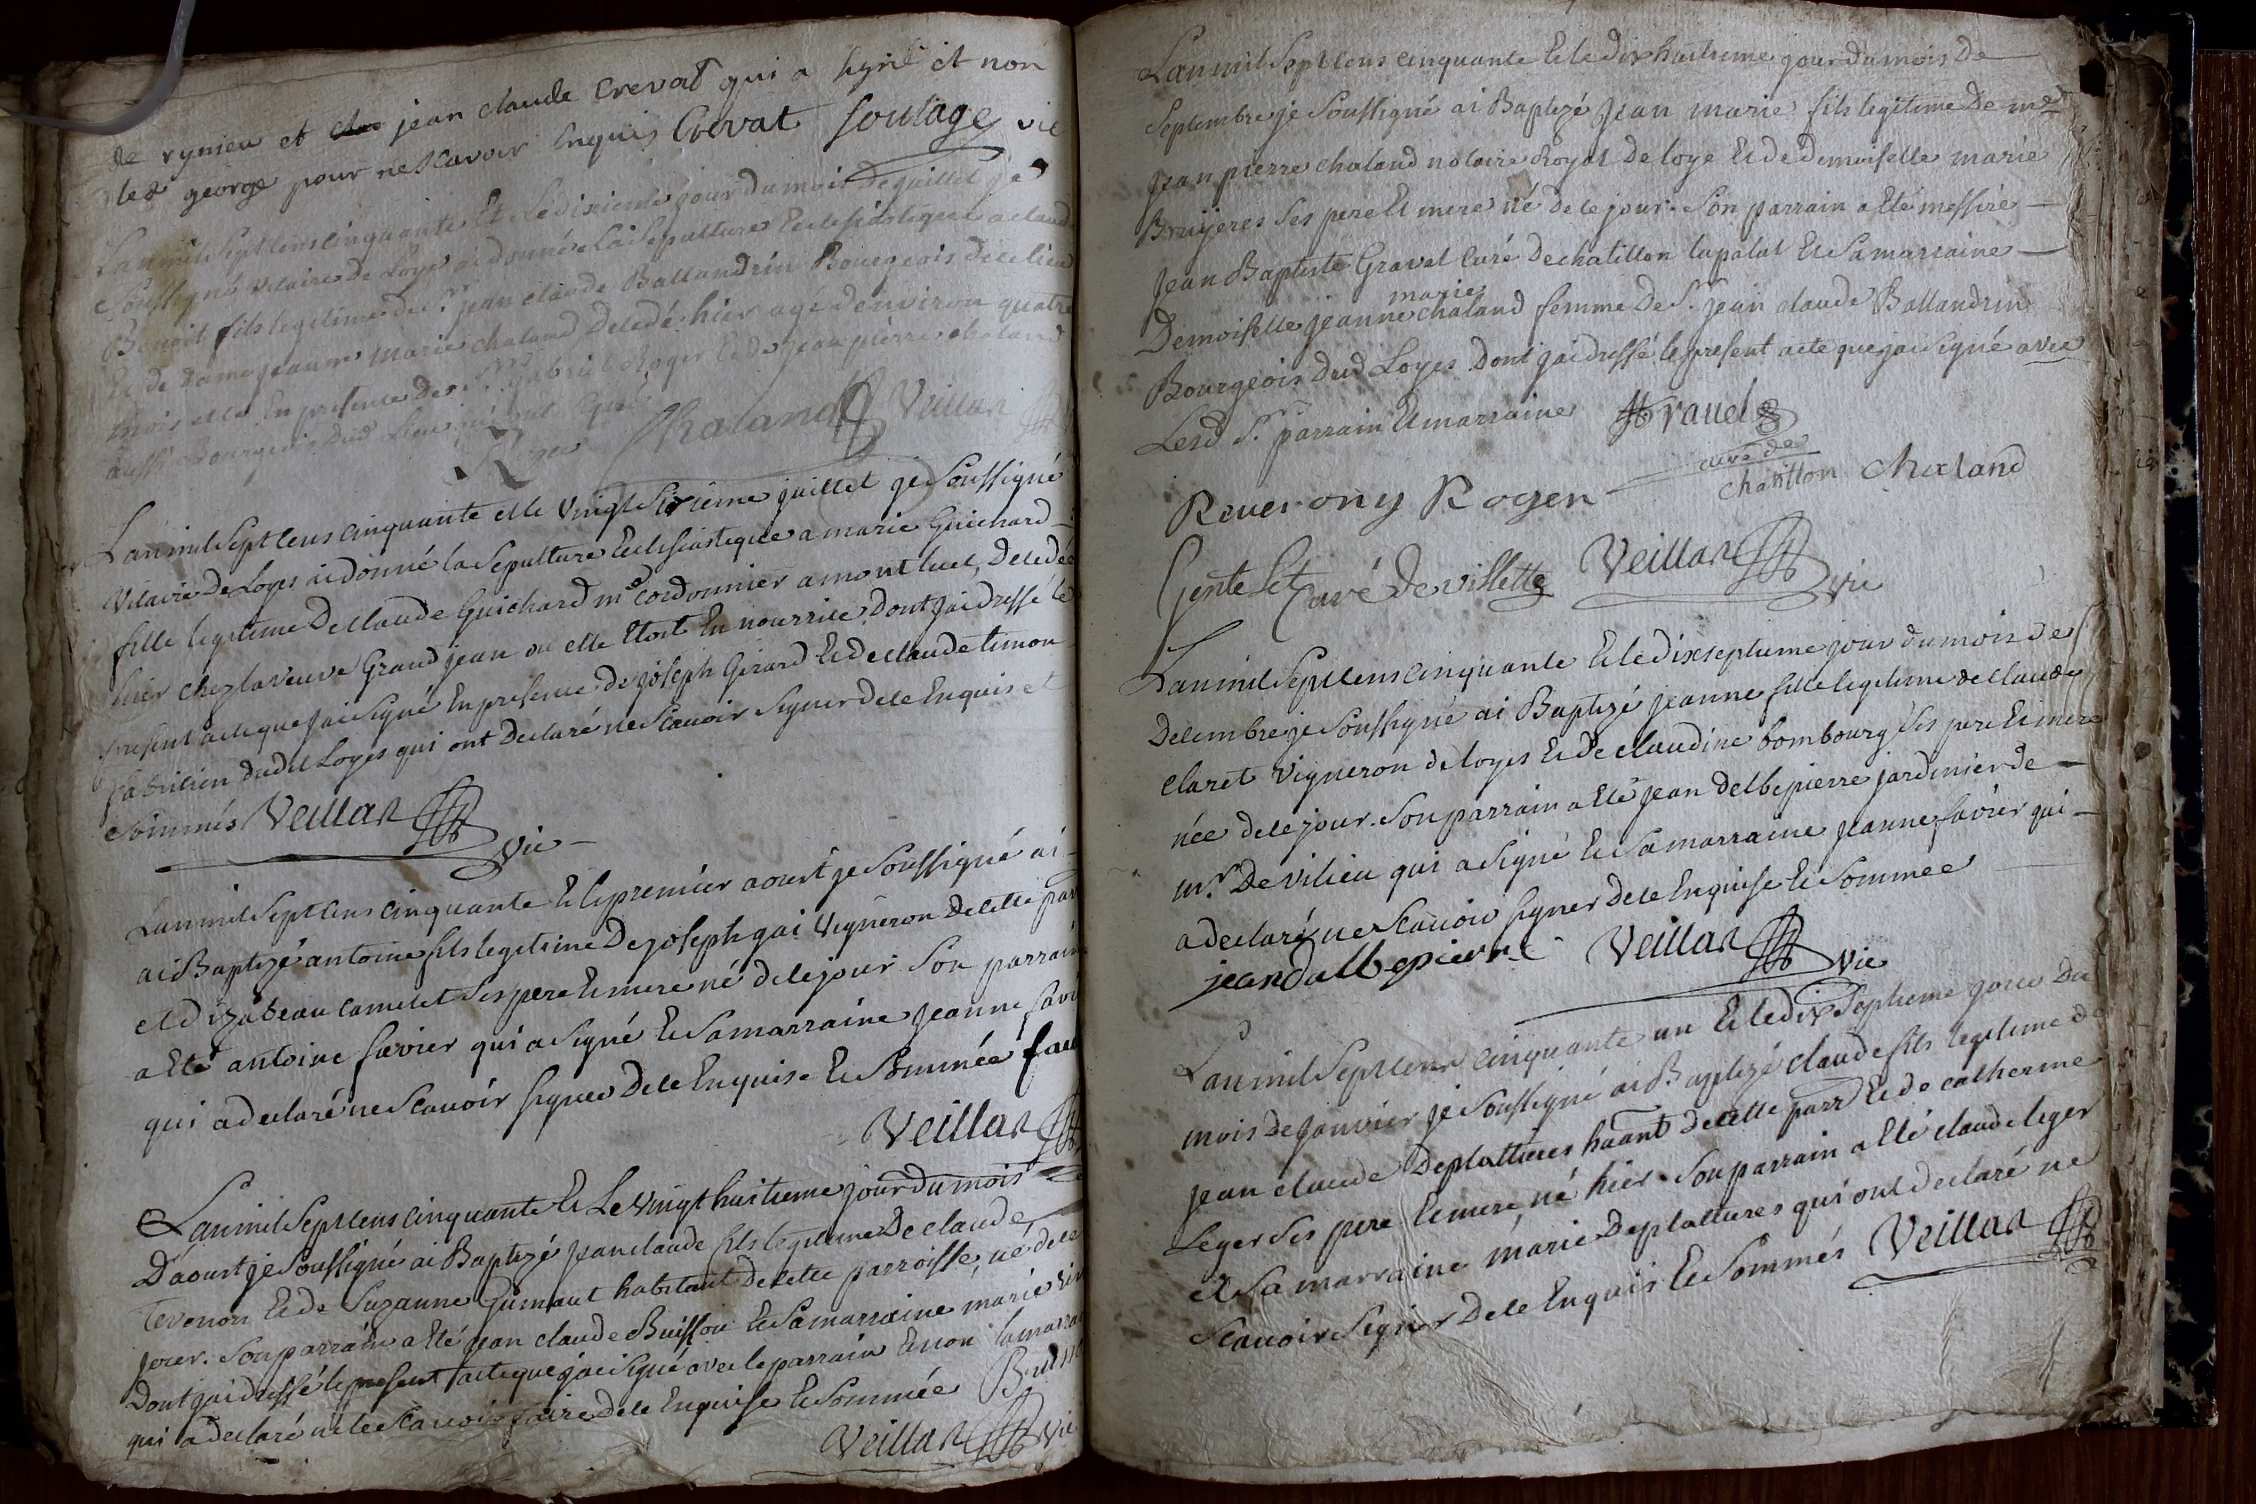 de rynieu et jean claude Crevat qui a signé et non
led george pour ne scavoir enquis Crevat Soulage vic
L'an mil sept cens cinquante et le dixieme jour du mois de juillet je
soussigné vicaire de Loyes ai donné la sepulture Ecclesiastique a claud
Benoit fils legitime de Sr. jean claude Ballandrin Bourgeois de ce lieu
et de dame jeanne marie chaland decedé hier agé d'environ quatre
mois et ce en presence des Srs. gabriel Roger et de jean pierre chaland
aussi Bourgeois dud lieu qui ont signé
Roger Chaland Veillar
L'an mil sept cens cinquante et le vingt sixième juillet je soussigné
Vicaire de Loyes ai donné la sepulture Ecclesiastique a marie Guichard
fille legitime de claude Guichard me cordonnier a montluel, decedée
hier chez la veuve Grandjean ou elle Etoit En nourrice, Dont jai dressé le
present acte que jai signé En presence de joseph Girard et de claude timon
sabrilien dudit Loyes qui ont declaré ne scavoir signer de ce Enquis et
sommés Veillar
vic
L'an mil sept cens cinquante et le premier aoust je soussigné ai
ai Baptizé antoine fils legitime de joseph gai Vigneron de cette par
et d'izabeau camelet ses pere et mere né de ce jour son parrain
a Eté antoine favier qui a signé et sa marraine jeanne favi
qui a declaré ne scavoir signer de ce Enquise et sommée fav
Veillar
L'an mil sept cens cinquante et Le vingt huitieme jour du mois
D'aoust je soussigné ai Baptizé jean claude fils legitime de claude
Tevenon et de Suzanne Gumaut habitant de cette parroisse, né de ce
jour. son parrain a Eté jean claude Buisson et sa marraine marie
Dont jai dressé le present acte que jai signé avec le parrain et non la marrai
qui a declaré ne le scavoir faire de ce Enquise et sommée Buisso
Veillar vic
L'an mil sept cens cinquante et le dix huitieme jour du mois de
septembre je soussigné ai Baptizé jean marie fils legitime de me
jean pierre chaland notaire Royal de loye et de demoiselle marie
Bruyeres ses pere et mere né de ce jour. son parrain a Eté messire
jean Baptiste Gravel Curé de chatillon la palat et sa marraine
marie
Demoiselle jeanne chaland femme de Sr. jean claude Ballandrin
Bourgeois dud Loyes Dont jai dressé le present acte que jai signé avec
Lesd Sr. parrain et marraine Gravel
curé de
chatillon Chaland
Reverony Roger
Gentelet Curé de villette Veillar
vic
L'an mil sept cens cinquante et le dix septieme jour du mois de
Decembre je soussigné ai Baptizé jeanne fille legitime de claude
claret vigneron de loyes et de claudine bombourg ses pere et mere
née de ce jour. son parrain a Eté jean delbepierre jardinier de
mr. De vilieu qui a signé et sa marraine jeanne favier qui
a declaré ne scavoir signer de ce Enquise et sommée
jean dallbepierre Veillar
vic
L'an mil sept cens cinquante un et le dix septieme jour du
mois de janvier je soussigné ai Baptizé claude fils legitime de
jean claude Deplattieres haant de cette parr et de catherine
Leger ses pere et mere né hier. son parrain a Eté claude leger
et sa marraine marie Deplattieres qui ont declaré ne
scavoir signer de ce Enquis et sommés Veillar